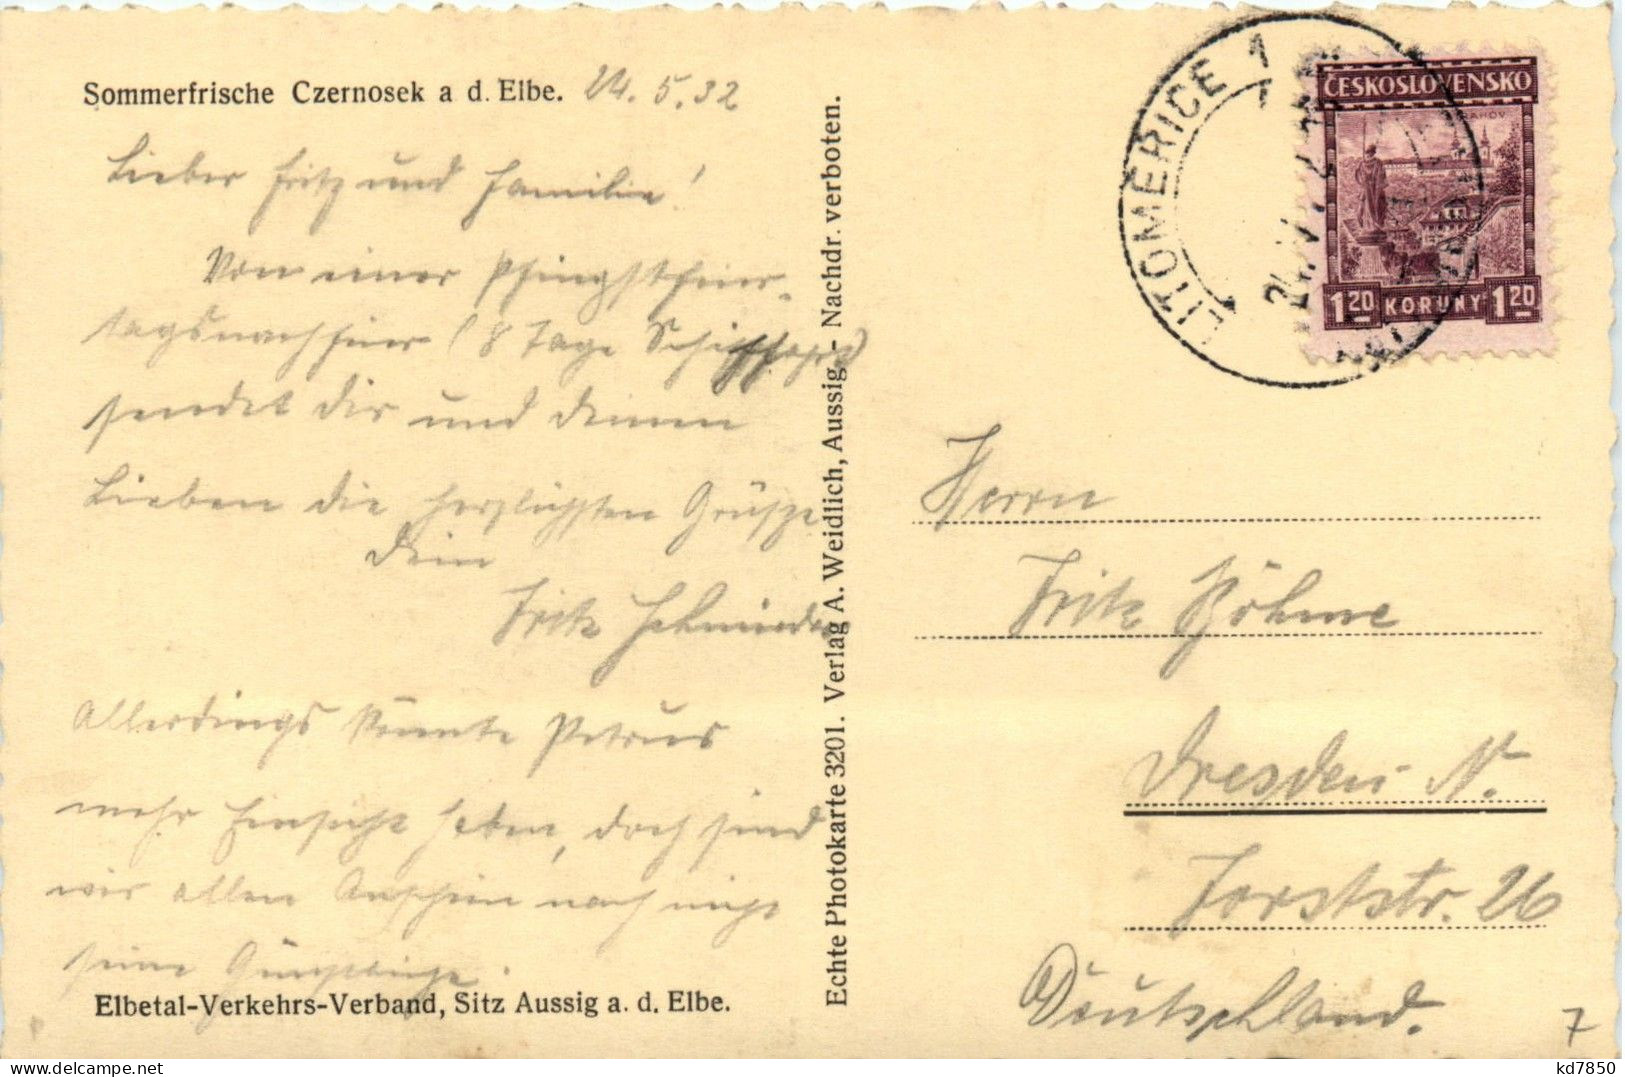 Sommerfrische Czernosek a d. Elbe. 24. 5. 32
Lieber Fritz und Familie!
Von einer Pfingstfeier-
tagsnachfeier (8 Tage Schifffahrt)
sendet Dir und Deinen
Lieben die herzlichsten Grüsze
Dein
Fritz Schmieder
Allerdings könnte Petrus
mehr Einsicht haben, doch sind
wir allem Anschein nach nicht
seine Günstlinge.
Elbetal-Verkehrs-Verband, Sitz Aussig a. d. Elbe.
Echte Photokarte 3201. Verlag A. Weidlich, Aussig.- Nachdr. verboten.
LITOMĚŘICE 1
24. V.
ČESKOSLOVENSKO
1 20 KORUNY 1 20
Herrn
Fritz Böhme
Dresden N.
Forststr. 26
Deutschland.
7
kd7850